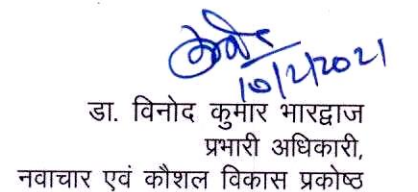 10/2/2021
डा. विनोद कुमार भारद्वाज
प्रभारी अधिकारी,
नवाचार एवं कौशल विकास प्रकोष्ठ